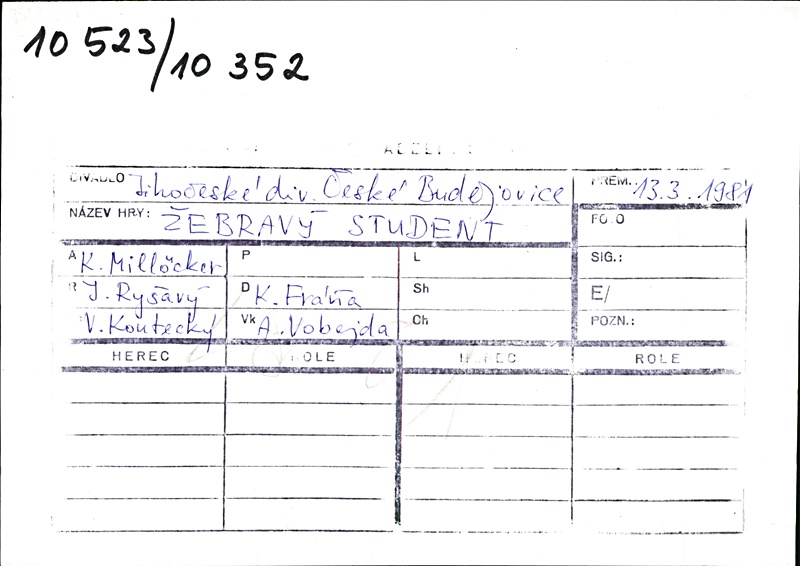 10 523/10 352
DIVADLO Jihočeské div. České Budějovice PREM.: 13.3.1981
NÁZEV HRY: ŽEBRAVÝ STUDENT FOTO
A K. Millöcker P L SIG.:
R J. Ryšavý D K. Fráňa Sh E/
V. Koutecký Vk A. Vobejda Ch POZN.:
HEREC ROLE HEREC ROLE